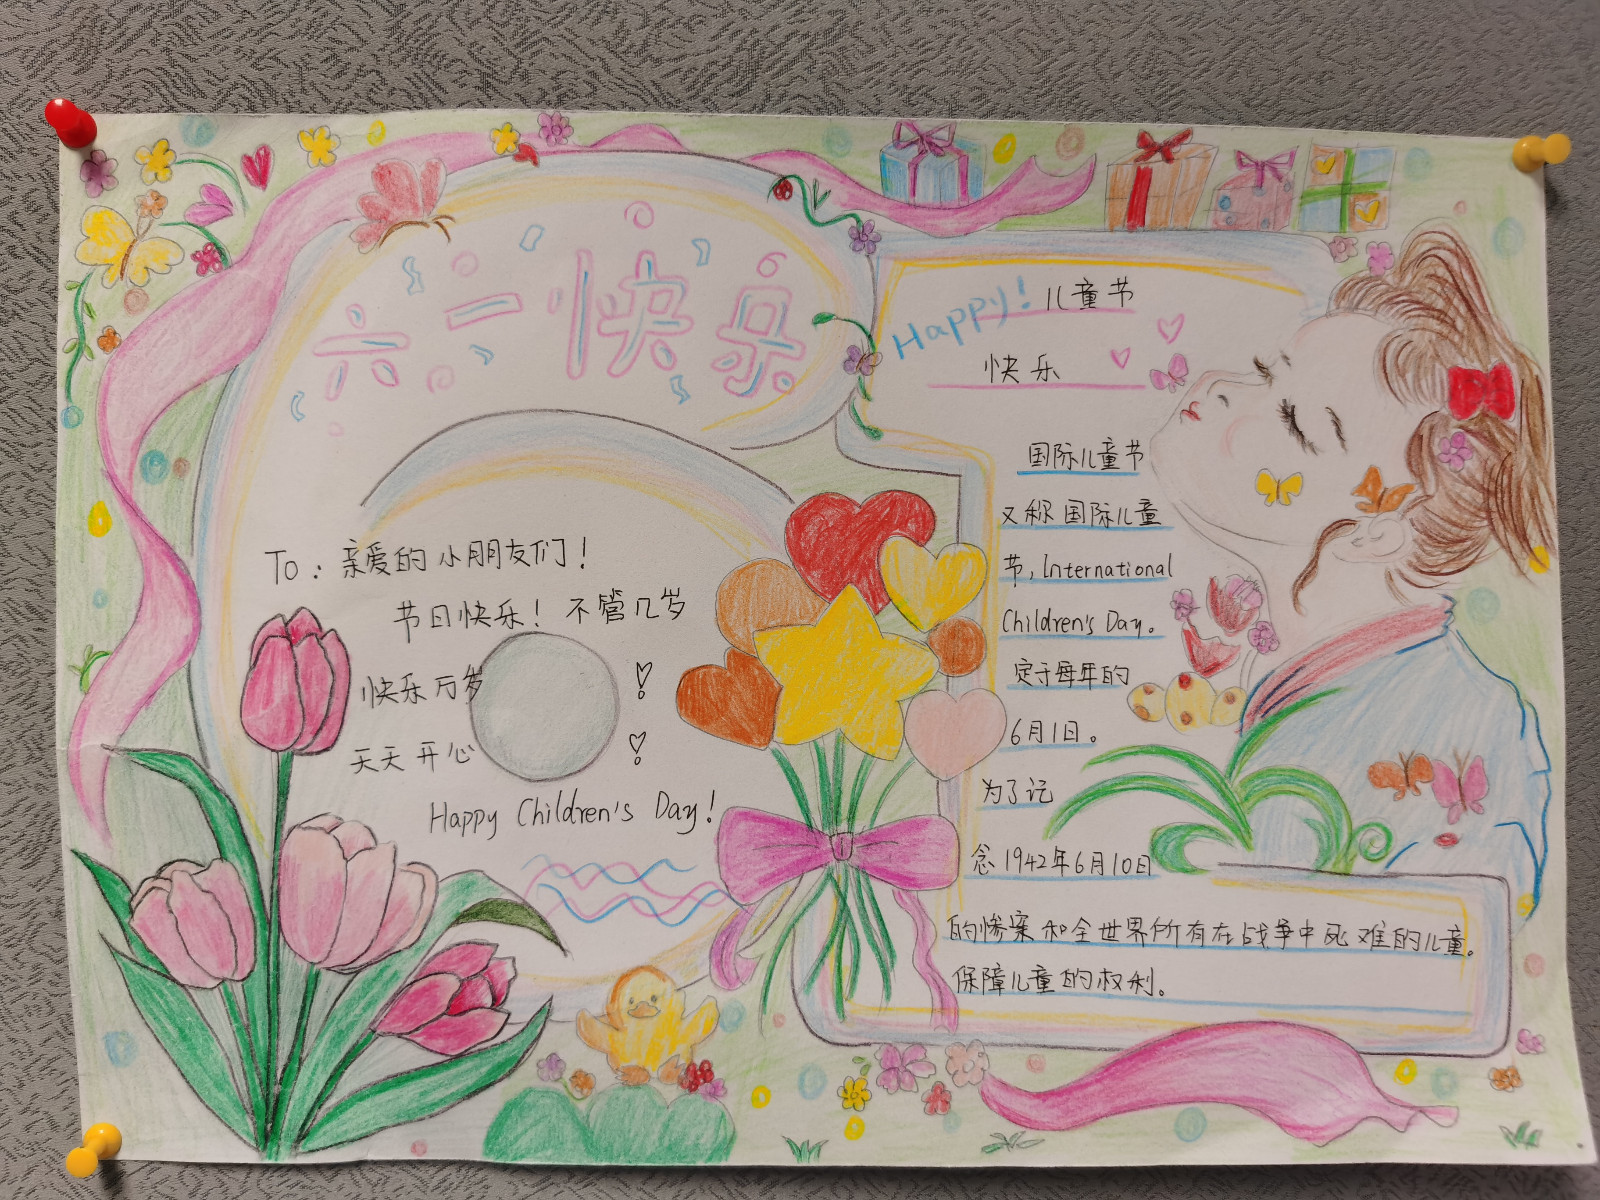 六一快乐
To：亲爱的小朋友们！
节日快乐！不管几岁
快乐万岁
天天开心
Happy Children's Day!
Happy! 儿童节
快乐
国际儿童节
又称国际儿童
节，International
Children's Day。
定于每年的
6月1日。
为了记
念1942年6月10日
的惨案和全世界所有在战争中死难的儿童。
保障儿童的权利。